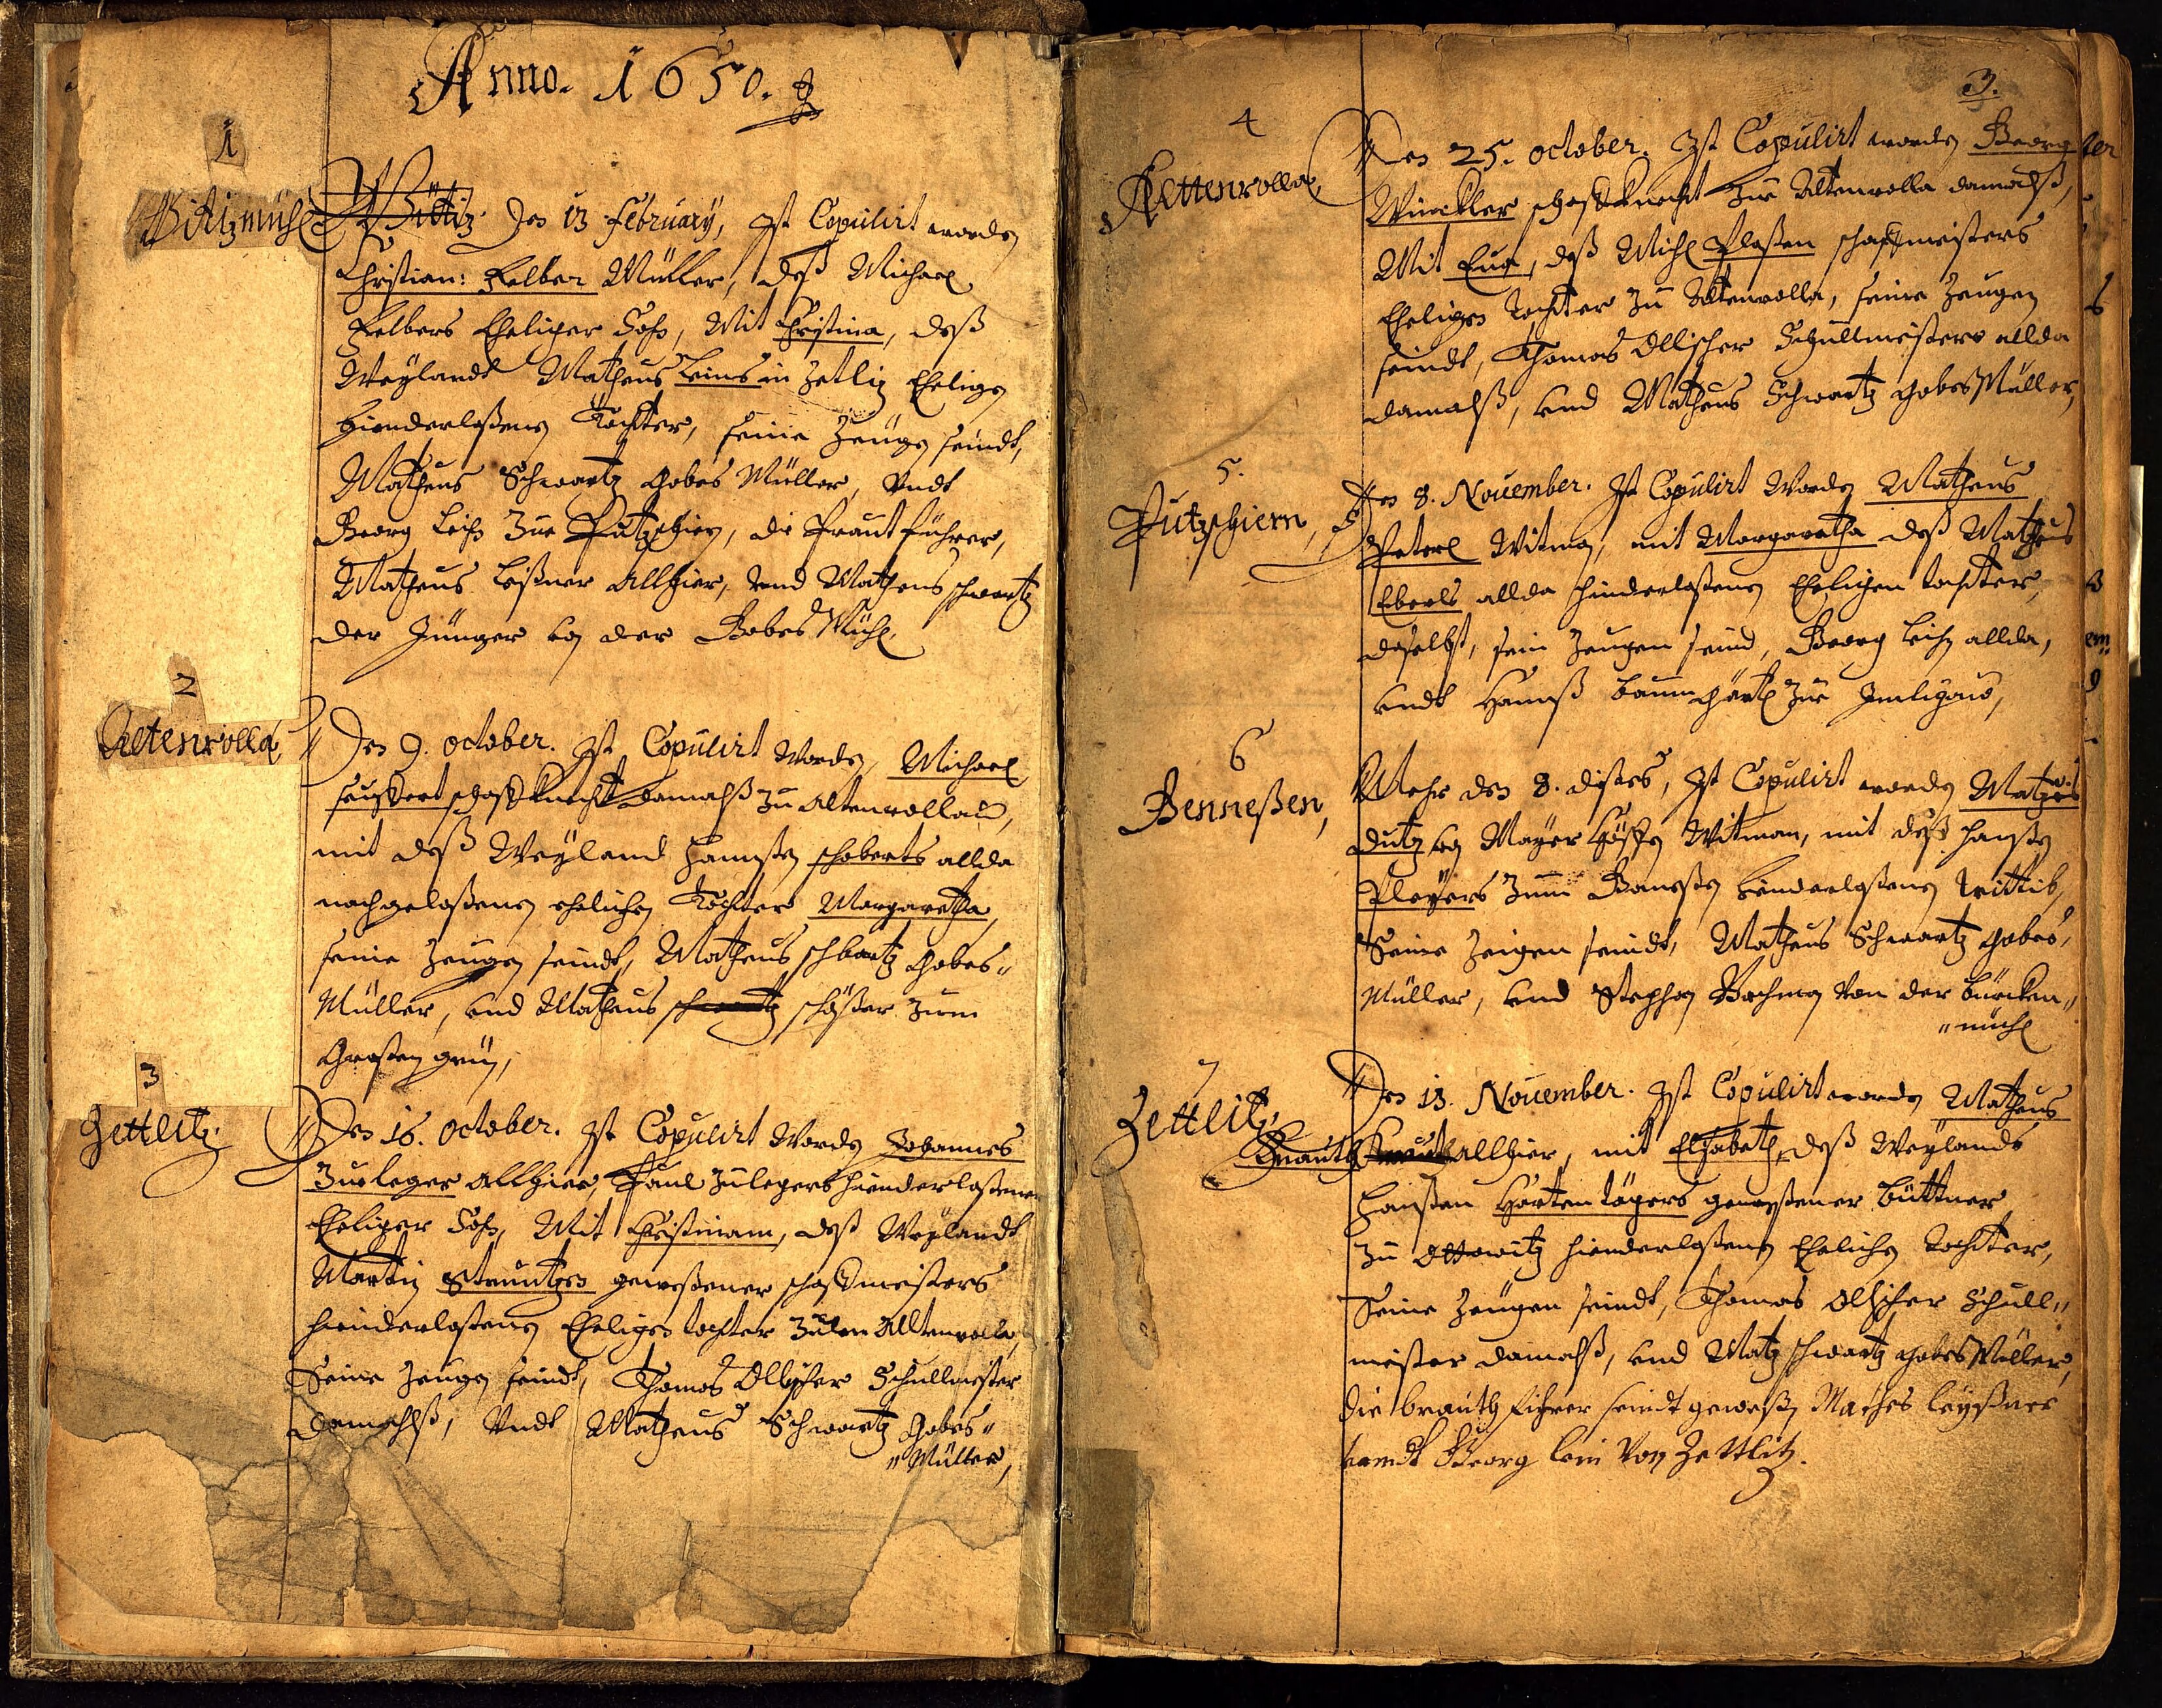 Anno. 1650.
1
Den 13 February, Ist Copulirt worden
Christian: Felber Müller, deß Michael
Felbers Ehelicher Sohn, Mit Christina, deß
Weylandt Matheus Leins in Zetlitz Ehelichen
hienderlaßenen Tochter, seine Zeugen seindt,
Matheus Schwartz Gobes Müller, Undt
Georg Leihn Zue Putzschiern, die Prautführer,
Matheus Leißner Allhier, Und Matheus Schwartz
der Jünger von der Gobes Mühl,
2
Altenrolla,
Den 9. october. Ist Copulirt Worden, Michael
schaffknecht damalß zu Altenrollau,
mit deß Weyland Hannßen Schoberts allda
nachgelaßenen ehelichen Tochter Margaretha,
seine Zeugen seindt, Matheus Schbartz Gobes„
Müller, und Matheus schwartz schößer zum
Großen grün,
3
Zettlitz.
Den 16. October. Ist Copulirt Worden Johannes
Zuleger Allhier, Paul Zulegers hienderlaßener
Ehelicher Sohn, Mit Christinam, deß Weylandt
Martin Struntzen geweßener schaffmeisters
hienderlaßenen Ehelichen tochter Zu Altenrolla,
Seine Zeugen seindt, Thomas Ollischer Schullmeister
damahlß, Undt Matheus Schwartz Gobes„
„Müller,
3.
4
Altenrolla,
Den 25. october. Ist Copulirt worden Georg
Winckler schaffknecht Zue Altenrolla damahlß,
Mit Eva, deß Michl Ploßen schaffmeisters
Ehelichen Tochter Zu Altenrolla, seine Zeugen
seindt, Thomas Ollischer Schullmeisters allda
damahlß, und Matheus Schwartz Gobes Müller,
5.
Putzschiern,
Den 8. November. Ist Copulirt Worden Matheus
Peterl Witman, mit Margaretha deß Matheus
Eberls allda hinderlaßenen Ehelichen tochter,
daselbst, sein Zeugen seind, Georg Leihn allda,
undt Hannß Baumgärtl Zue Imligaus,
6
Benneßen,
Mehr den 8. dißes, Ist Copulirt worden Matheus
Dutz von Mayer Höffen Witman, mit deß Hanßen
Pleyers Zum Baneßen hinderlaßenen Wittib,
Seine Zeigen seindt, Matheus Schwartz Gobes,
Müller, und Stephan Bachman von der bürcken„
„mühl
7
Zettlitz,
Den 13. November. Ist Copulirt worden Matheus
Knauth allhier, mit Elisabeth, deß Weylandt
Hanßen Hartentägers geweßener Büttner
Zu Ottowitz hienderlaßenen Ehelichen Tochter,
Seine Zeugen seindt, Thomas Ollischer Schull„
meister damahlß, und Matz schwartz Gobes Müller,
die brauth fihrer seindt geweßen Mathes leyßner
vandt Georg lein Von Zettlitz.